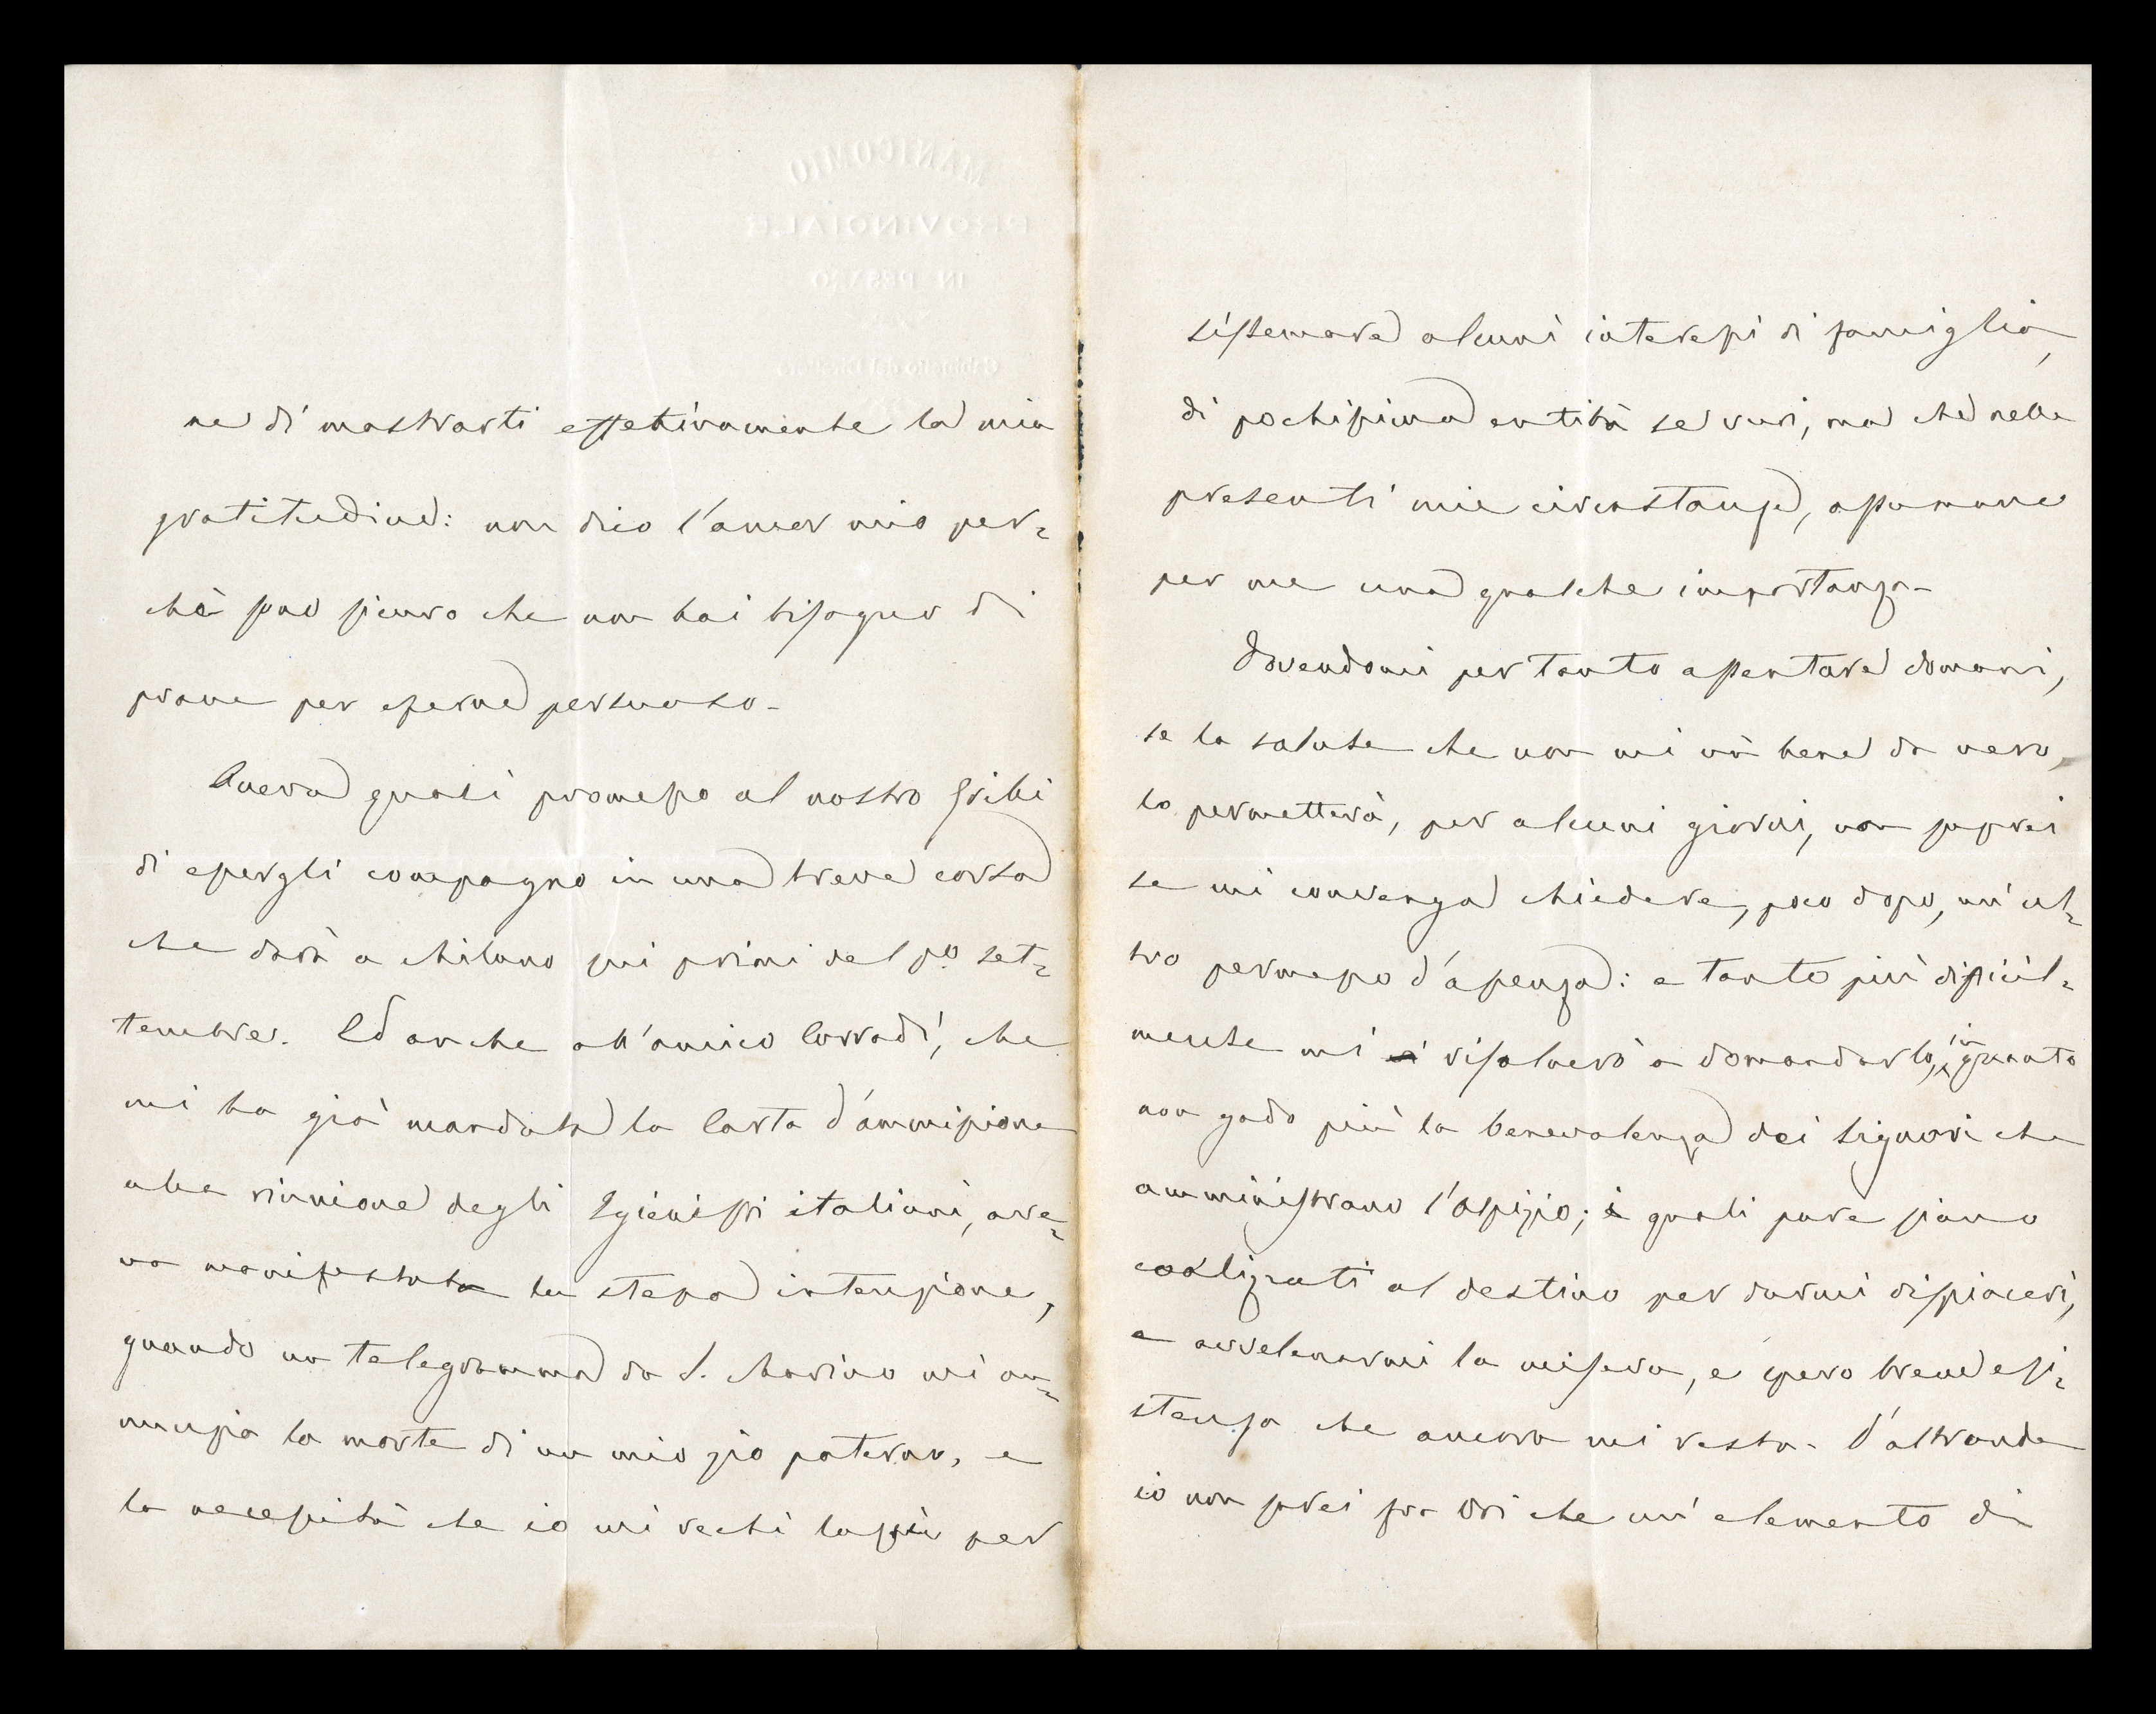 MANICOMIO
PROVINCIALE
IN PESARO
Gabinetto del Direttore
ne di mostrarti effettivamente la mia
gratitudine: non dico l'amor mio per=
chè sono sicuro che non hai bisogno di
prove per esserne persuaso.
Aveva quasi promesso al nostro Grilli
di essergli compagno in una breve corsa
che darà a Milano sui primi del po. set=
tembre. Ed anche all'amico Corradi, che
mi ha già mandata la Carta d'ammissione
alla riunione degli Igienisti italiani, ave=
va manifestata la stessa intenzione,
quando un telegramma da S. Marino mi an=
nunzia la morte di un mio zio paterno, e
la necessità che io mi rechi lassù per
sistemare alcuni interessi di famiglia,
di pochissima entità se vuoi, ma che nelle
presenti mie circostanze, assumono
per me una qualche importanza.
Dovendomi per tanto assentare domani,
se la salute che non mi và bene da vero,
lo permetterà, per alcuni giorni, non saprei
se mi convenga chiedere, poco dopo, un'al=
tro permesso d'assenza: e tanto più dificil=
mente mi risolverò a domandarlo, in quanto
non godo più la benevolenza dei Signori che
amministrano l'Ospizio; i quali pare siano
coalizzati al destino per darmi dispiaceri,
e avvelenarmi la misera, e spero breve esi=
stenza che ancora mi resta. D'altronde
io non sarei fra Voi che un' elemento di